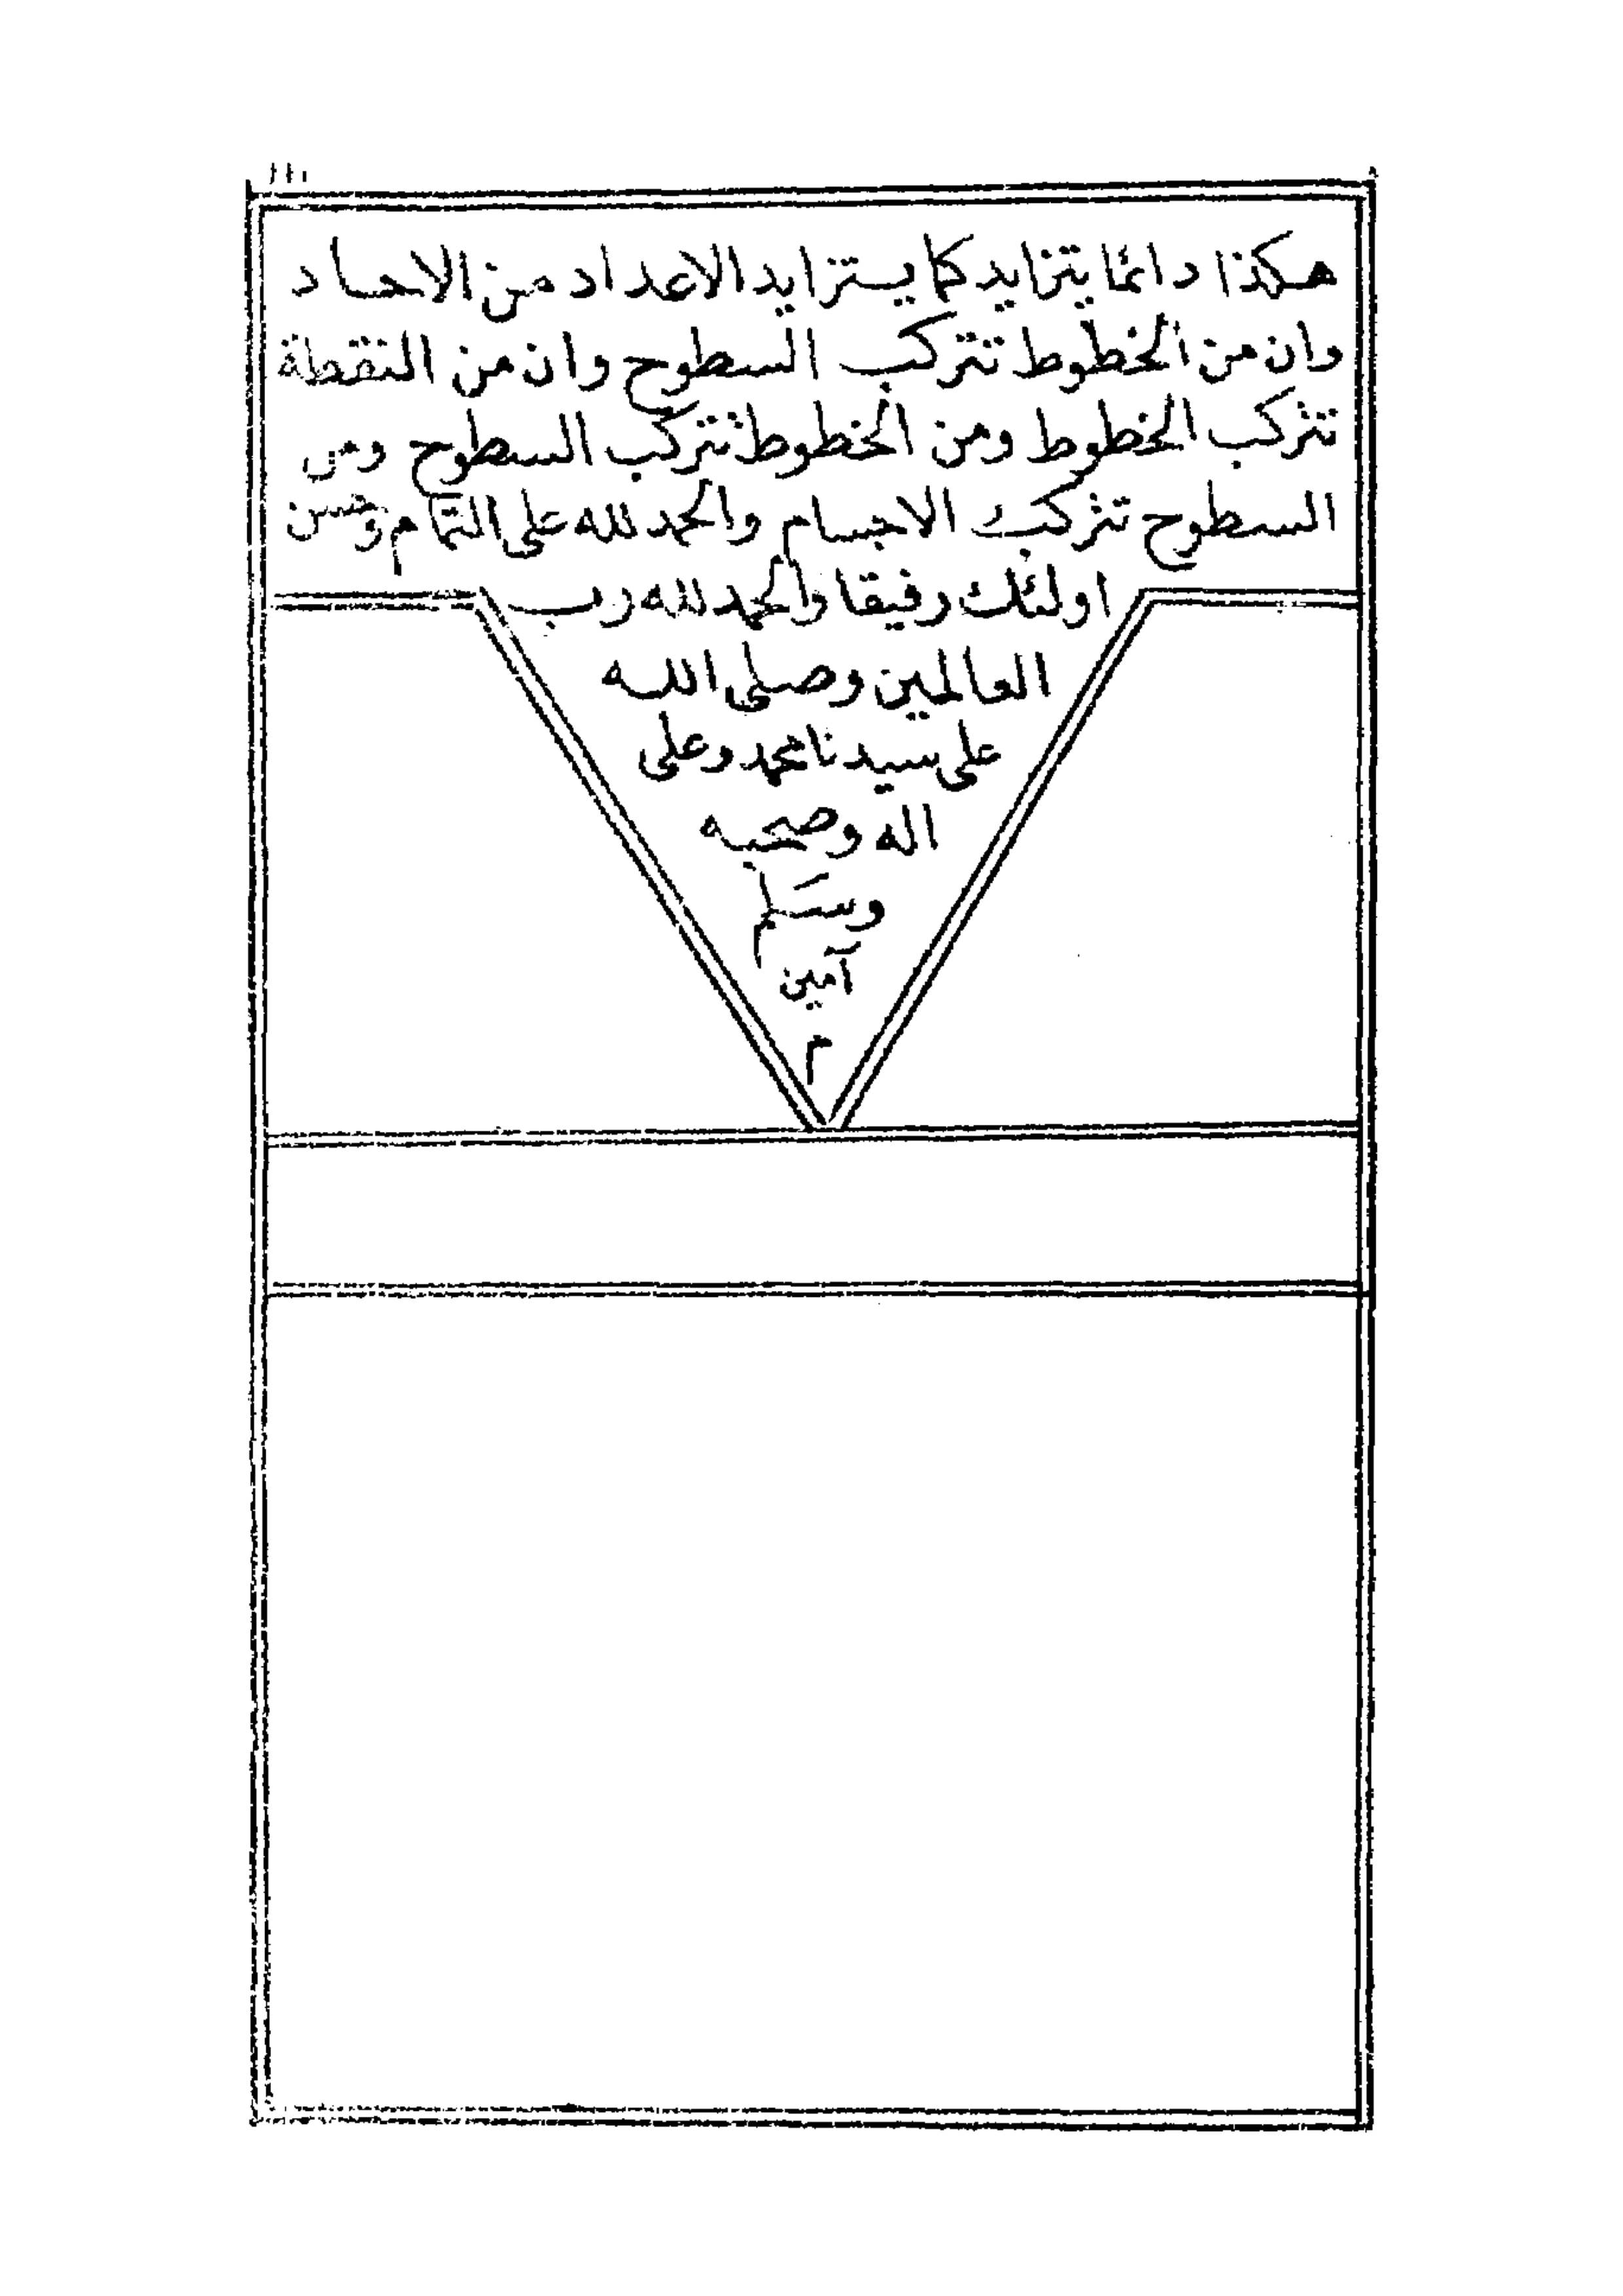 هكذا دائما يتزايد كما يستزايد الاعداد من الاحاد
وان من الخطوط تتركب السطوح وان من النقطة
تتركب الخطوط ومن الخطوط تتركب السطوح ومن
السطوح تتركب الاجسام والحمد لله على التمام وحسن
اولئك رفيقا والحمد لله رب
العالمين وصلى الله
على سيدنا محمد وعلى
اله وصحبه
وسَلم
آمين
م